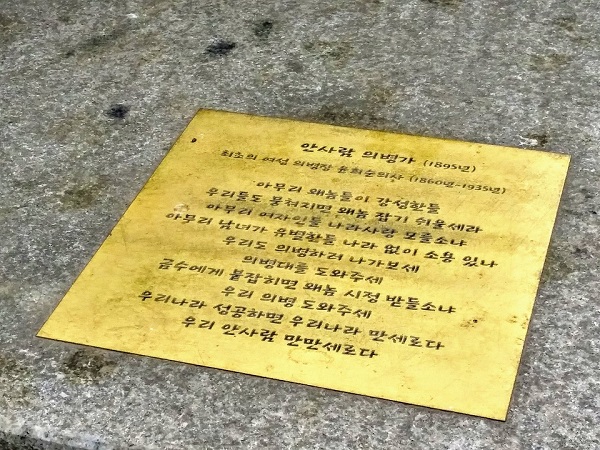 안사람 의병가 (1895년)
최초의 여성 의병장 윤희순의사 (1860년-1935년)
아무리 왜놈들이 강성한들
우리들도 뭉쳐지면 왜놈 잡기 쉬울세라
아무리 여자인들 나라사랑 모를소냐
아무리 남녀가 유별한들 나라 없이 소용 있나
우리도 의병하러 나가보세
의병대를 도와주세
금수에게 붙잡히면 왜놈 시정 받들소냐
우리 의병 도와주세
우리나라 성공하면 우리나라 만세로다
우리 안사람 만만세로다